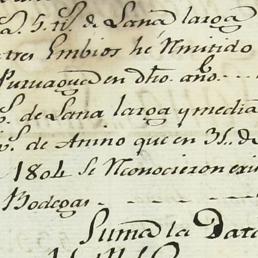 a. 5. rs. de Lana larga
tres Embios hé Rmitido
en dho. año.
ps. de Lana larga y media
ps. de Anino que en 31. de
1804 se Rconocieron exi
Bodegas.
Suma la Data